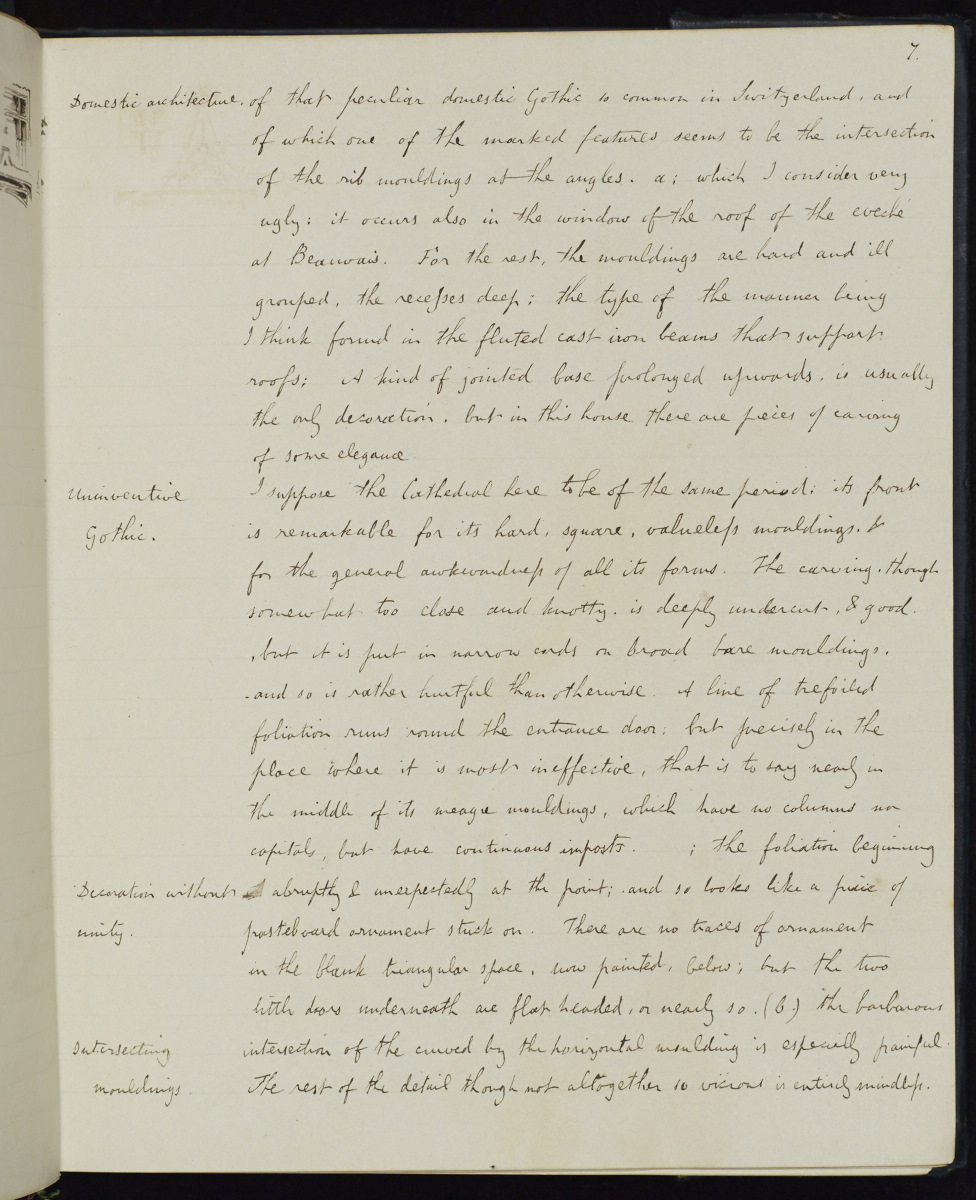 7.
Domestic architecture. of that peculiar domestic Gothic so common in Switzerland, and
of which one of the marked features seems to be the intersection
of the rib mouldings at the angles. a; which I consider very
ugly: it occurs also in the window of the roof of the evechè
at Beauvais. For the rest, the mouldings are hard and ill
grouped, the recesses deep; the type of the manner being
I think found in the fluted cast iron beams that support
roofs; A kind of jointed base prolonged upwards, is usually
the only decoration, but in this house there are pieces of carving
of some elegance
Uninventive I suppose the Cathedral here to be of the same period: its front
Gothic. is remarkable for its hard, square, valueless mouldings, &
for the general awkwardness of all its forms. The carving, though
somewhat too close and knotty, is deeply undercut, & good.
, but it is put in narrow cords on broad bare mouldings.
-and so is rather hurtful than otherwise. A line of trefoiled
foliation runs round the entrance door: but precisely in the
place where it is most ineffective, that is to say nearly in
the middle of its meagre mouldings, which have no columns nor
capitals, but have continuous imposts. ; the foliation beginning
Decoration without abruptly & unexpectedly at the point; and so looks like a piece of
unity. pasteboard ornament stuck on. There are no traces of ornament
in the blank triangular space, now painted, below; but the two
little doors underneath are flat headed, or nearly so. (b.) the barbarous
Intersecting intersection of the curved by the horizontal moulding is especially painful.
mouldings. The rest of the detail though not altogether so vicious is entirely mindless.